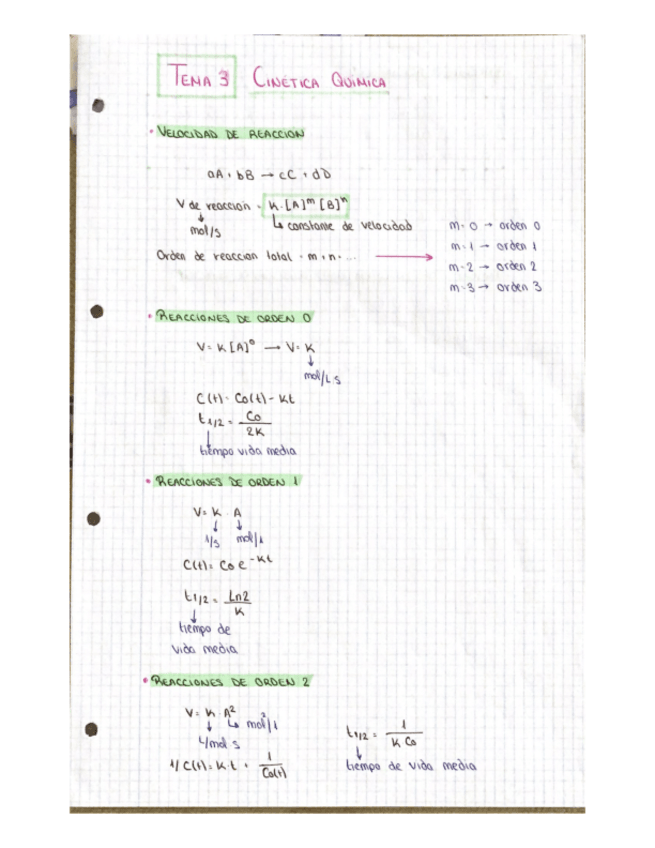 TEMA 3 CINÉTICA QUÍMICA
• VELOCIDAD DE REACCION
aA + bB → cC + dD
V de reacción = K · [A]^m [B]^n
↓ mol/s
↳ constante de velocidad
Orden de reaccion total = m + n + ... →
m = 0 → orden 0
m = 1 → orden 1
m = 2 → orden 2
m = 3 → orden 3
• REACCIONES DE ORDEN 0
V = K [A]⁰ → V = K
↓
mol/L·s
C(t) = Co(t) - Kt
t1/2 = Co / 2K
↓
tiempo vida media
• REACCIONES DE ORDEN 1
V = K · A
↓ ↓
1/s mol/l
C(t) = Co e^-Kt
t1/2 = Ln2 / K
↓
tiempo de
vida media
• REACCIONES DE ORDEN 2
V = K · A²
↓ ↳ mol²/l
L/mol s
1/C(t) = K·t + 1 / Co(t)
t1/2 = 1 / K Co
↓
tiempo de vida media